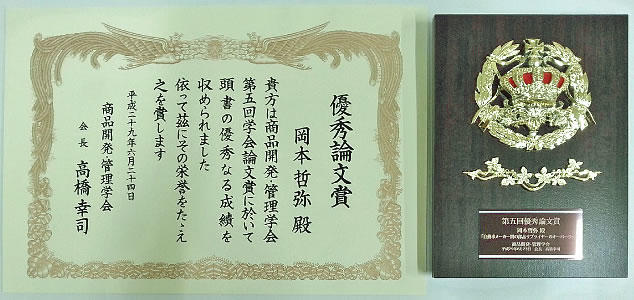 優秀論文賞
岡本哲弥 殿
貴方は商品開発・管理学会
第五回学会論文賞に於いて
頭書の優秀なる成績を
収められました
依って茲にその栄誉をたゝえ
之を賞します
平成二十九年六月二十四日
商品開発・管理学会
会長 高橋幸司
第五回優秀論文賞
岡本哲弥 殿
商品開発・管理学会